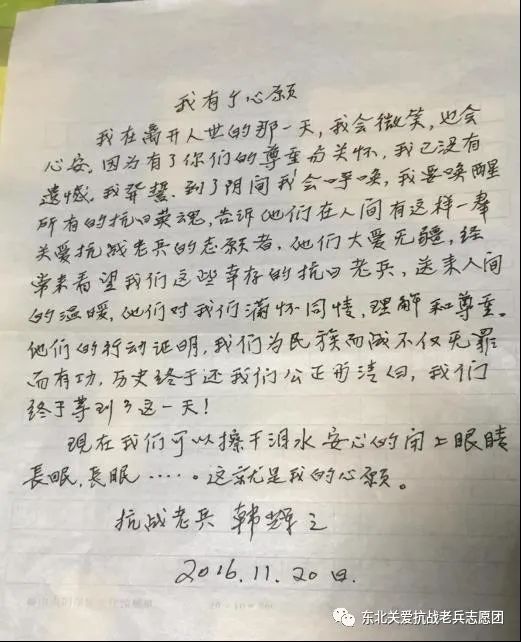 我有个心愿
我在离开人世的那一天，我会微笑，也会
心安。因为有了你们的尊重与关怀，我已没有
遗憾。我发誓，到了阴间我会呼唤，我要唤醒
所有的抗日英魂，告诉他们在人间有这样一群
关爱抗战老兵的志愿者，他们大爱无疆，经
常来看望我们这些幸存的抗日老兵，送来人间
的温暖，他们对我们满怀同情，理解和尊重。
他们的行动证明，我们为民族而战不仅无罪
而有功，历史终于还我们公正与清白，我们
终于等到了这一天！
现在我们可以擦干泪水安心的闭上眼睛
長眠，長眠……。这就是我的心愿。
抗战老兵 韩
2016.11.20日.
东北关爱抗战老兵志愿团